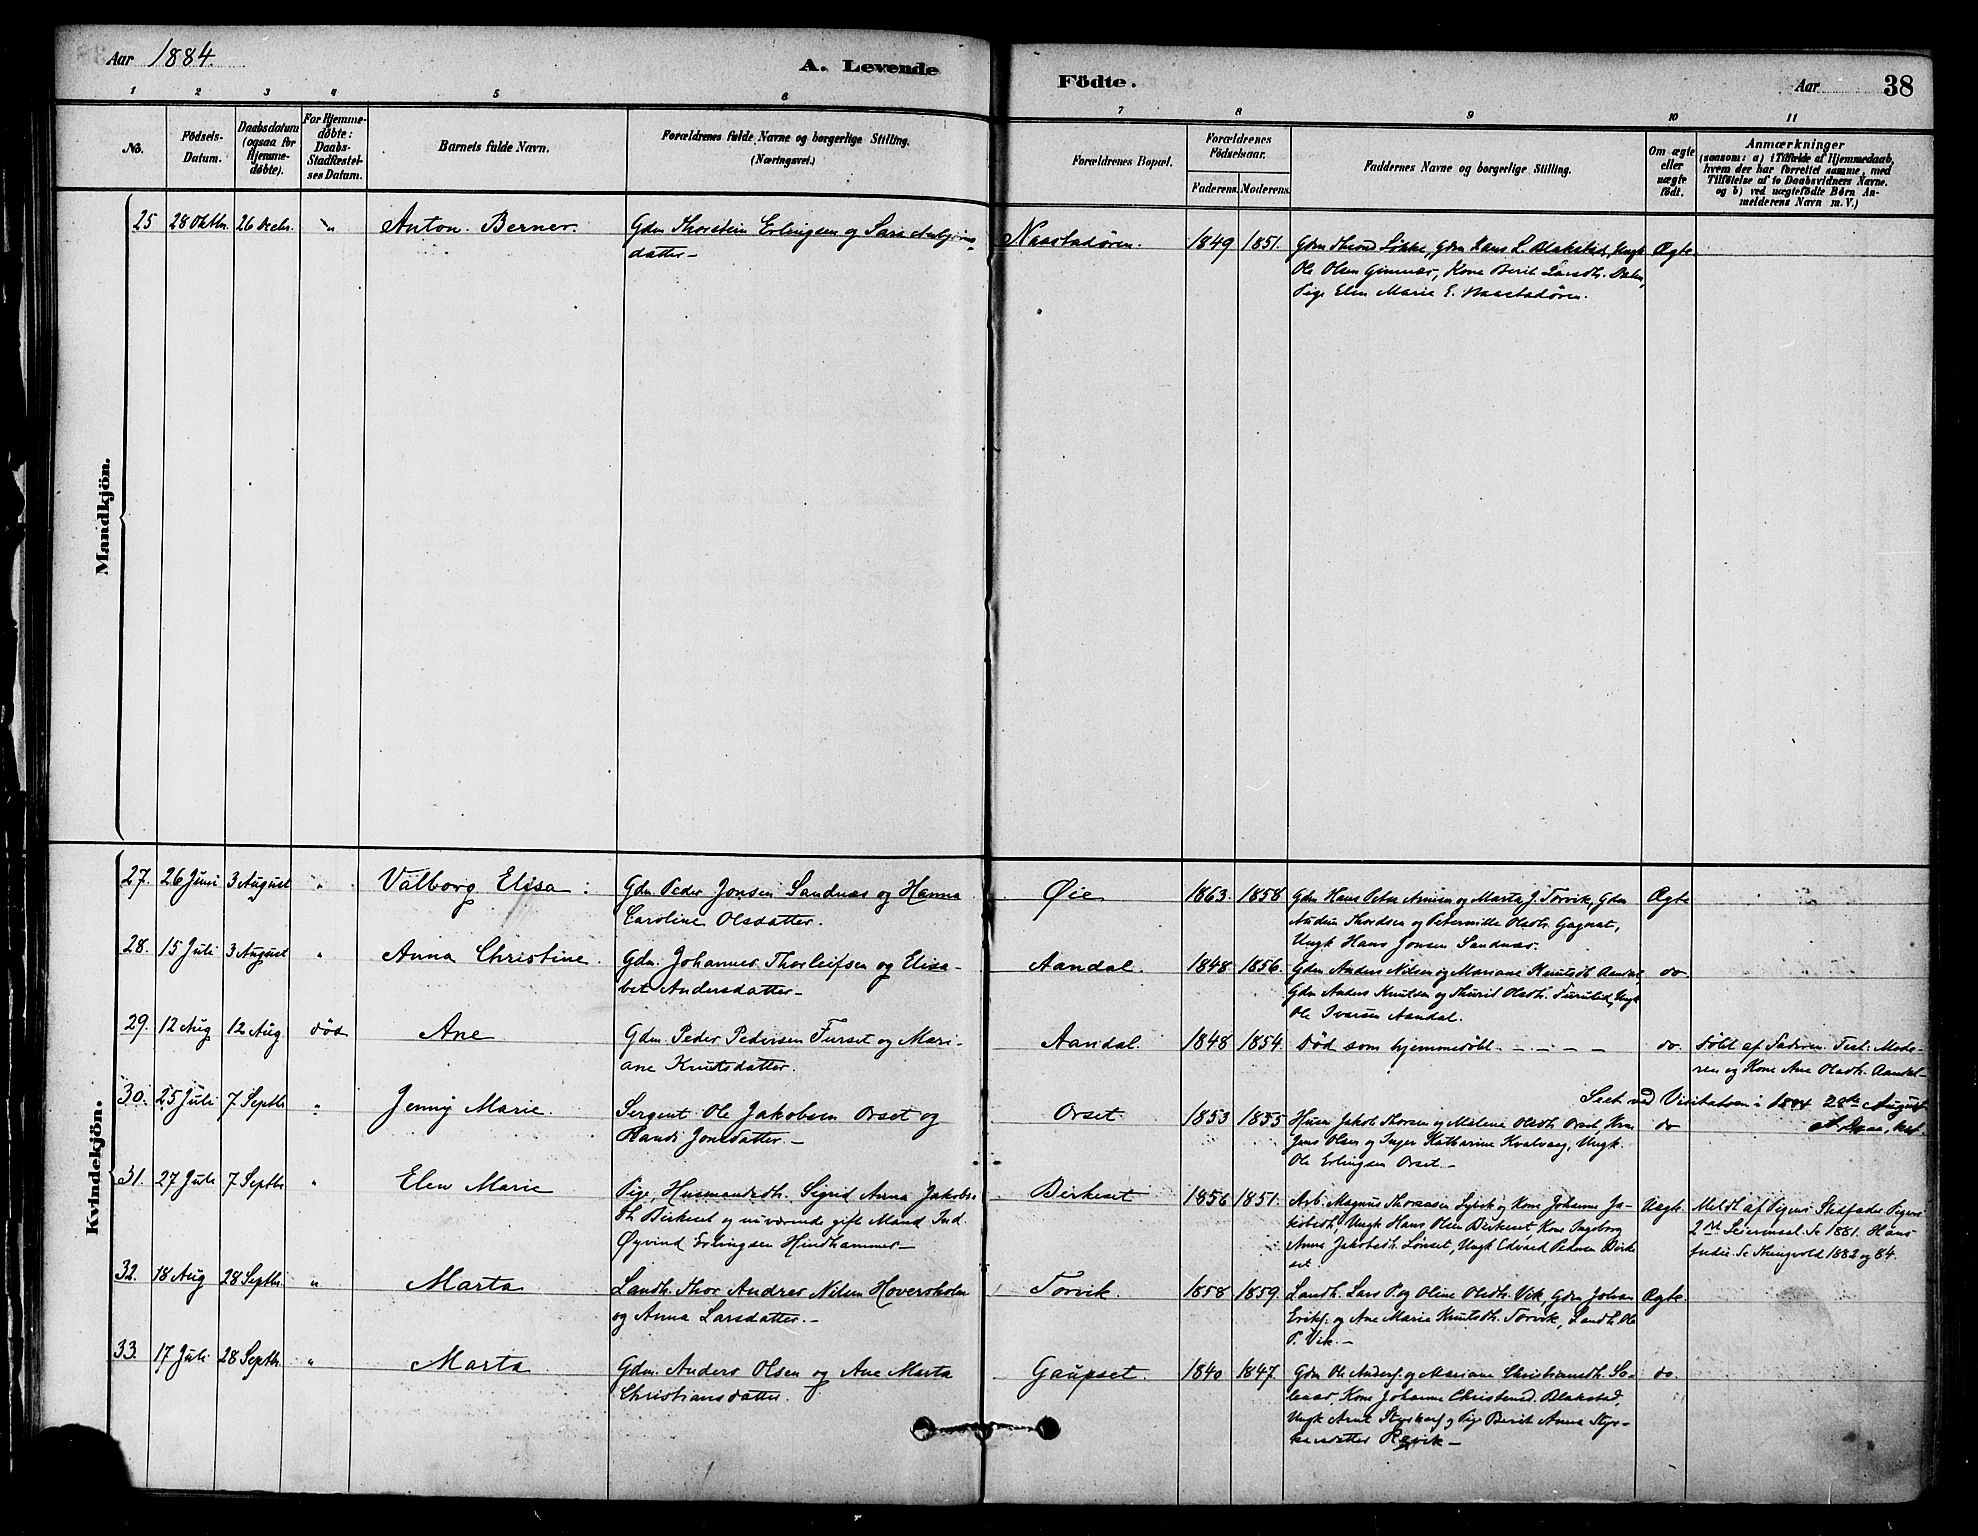 Aar 1884.
A. Levende
Födte.
Aar
38
1 2 3 4 5 6 7 8 9 10 11
No.
Födsels-Datum.
Daabsdatum (ogsaa for Hjemmedöbte).
For Hjemmedöbte: Daabs-Stadfæstelses Datum.
Barnets fulde Navn.
Forældrenes fulde Navne og borgerlige Stilling. (Næringsvei.)
Forældrenes Bopæl.
Forældrenes Födselsaar.
Faderens. Moderens.
Faddernes Navne og borgerlige Stilling.
Om ægte eller uægte födt.
Anmærkninger
(saasom: a) i Tilfælde af Hjemmedaab, hvem der har forrettet samme, med Tilföielse af to Daabsvidners Navne. og b) ved uægtefödte Börn Anmelderens Navn m. V.)
Mandkjön.
25 28 Oktbr. 26 Decbr. " Anton Berner. Gdm Thorstein Erlingsen og Sara
datter- Naastadören. 1849 1851. Gdm Thrond Løkke, Gdm Hans L. Blakstad, Ungk Ægte
Ole Olsen Gimnæs, Kone Berit Larsdtr. Dalen,
Pige Elen Marie E. Naastadören.
Kvindekjön.
27. 26 Juni 3 August " Valborg Elisa. Gdm Peder Jonsen Sandnæs og Hanna
Caroline Olsdatter. Øie 1863. 1858 Gdm Hans Peter Arnisen og Marta J. Torvik, Gdm Ægte
Audun Thordsen og Petermille Olsdtr. Gagnat,
Ungk Hans Jonsen Sandnæs.
28. 15 Juli 3 August " Anna Christine. Gdm. Johannes Thorleifsen og Elisa-
bet Andersdatter- Aandal. 1848 1856. Gdm Anders Nilsen og Mariane Knutsdtr. Aandal, do.
Gdm Anders Knutsen og Thurid Olsdtr. Furustad, Ungk
Ole Ivarsen Aandal.
29. 12 Aug 12 Aug. død Ane Gdm. Peder Pedersen Furset og Mari-
ane Knutsdatter. Aandal. 1848 1854. Død som hjemmedöbt. - - - - do. Döbt af Faderen. Test: Mode-
ren og Kone Ane Olsdtr. Aandal-
30. 25 Juli 7 Septbr. " Jenny Marie. Sergent Ole Jakobsen Orset og
Randi Jonsdatter- Orset 1853 1855 Husm Jakob Thorsen og Malene Olsdtr. Orset, Kone do
Jens Olsen og Inger Katharine Kvalvaag, Ungk.
Ole Erlingsen Orset.-
Seet ved Visitatsen i 1884 28de August
31. 27 Juli 7 Septbr. " Elen Marie Pige, Husmandsdtr. Sigrid Anna Jakobs-
dtr. Birkeset og nuværende gifte Mand Ind.
Øyvind Erlingsen Hindhammer- Birkeset 1856 1851. Arb. Magnus Thomasen og Kone Johanne Ja-
kobsdtr, Ungk Hans Olsen Birkeset, Kone Ingeborg
Anna Jakobsdtr. Lönset, Ungk Edvard Pedersen Birke
set Uægte. Meldt af Pigens Stedfader Pigens
2det Leiermaal. Se 1881.
Se Thingvold 1882 og 84.
32. 18 Aug 28 Septbr. " Marta Landh. Thor Andreas Nilsen Hoversholm
og Anna Larsdatter.- Torvik. 1858 1859 Landh. Lars P. og Oline Olsdtr. Vik, Gdm Johan Ægte.
Eriks. og Ane Marie Knutsdtr. Torvik, Landh. Ole
P. Vik.-
33. 17 Juli 28 Septbr. " Marta Gdm. Anders Olsen og Ane Marta
Christiansdatter. Gaupset. 1840 1847. Gdm Ole Anders. og Mariane Christiansdtr. So- do.
, Kone Johanne Christensd. Blakstad,
Ungk Arnt og Pige Berit Anna Styr-
kaarsdatter Rævik-